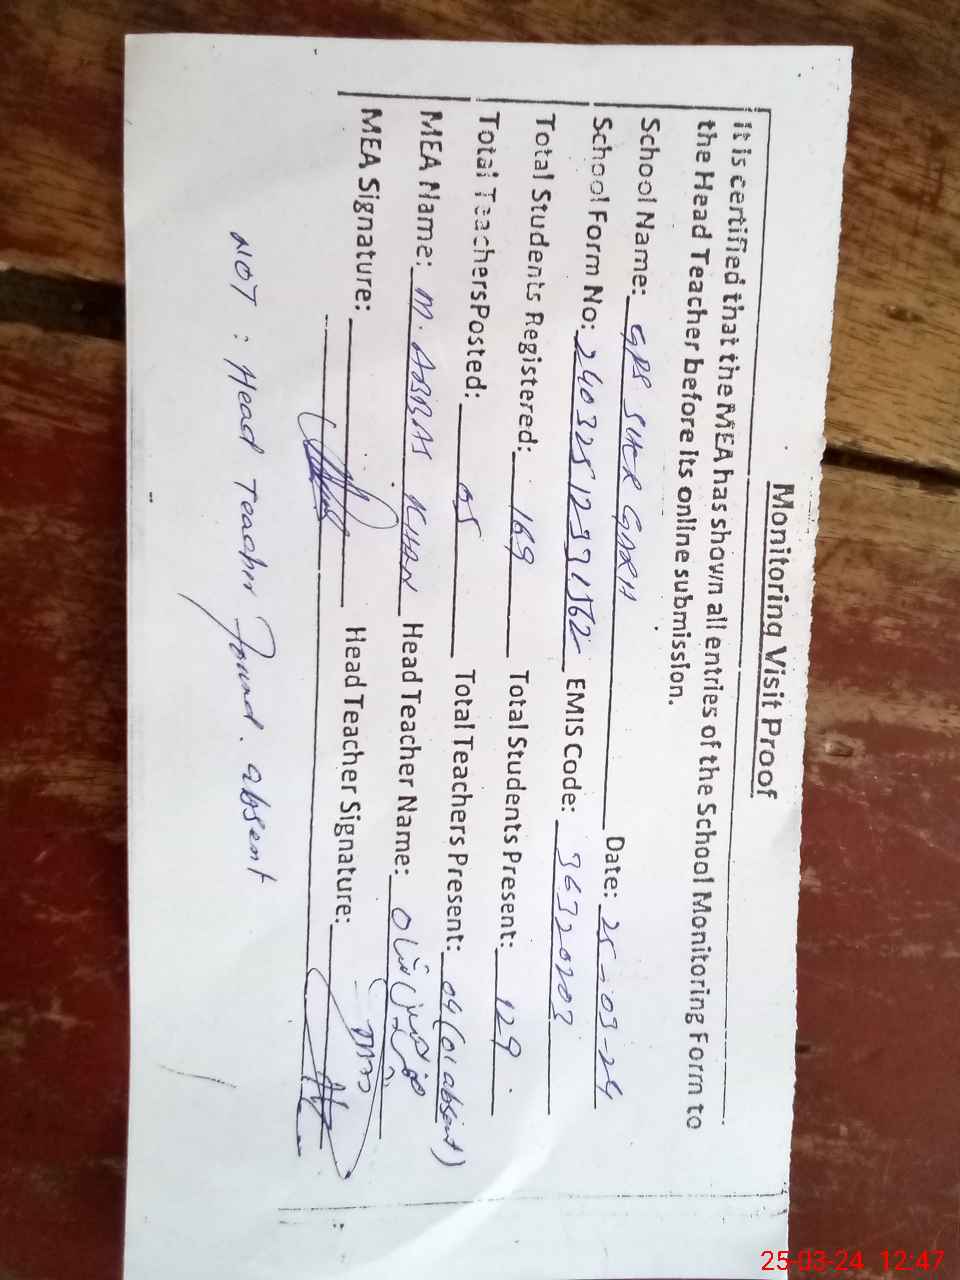 Monitoring Visit Proof
It is certified that the MEA has shown all entries of the School Monitoring Form to
the Head Teacher before its online submission.
School Name: GPS SHER GARH Date: 25-03-24
School Form No: 240325125971562 EMIS Code: 36320203
Total Students Registered: 169 Total Students Present: 129
Total TeachersPosted: 05 Total Teachers Present: 04 (01 absent)
MEA Name: M. ABBAS KHAN Head Teacher Name:
MEA Signature: Head Teacher Signature:
NOT : Head Teacher Found. absent
25-03-24 12:47